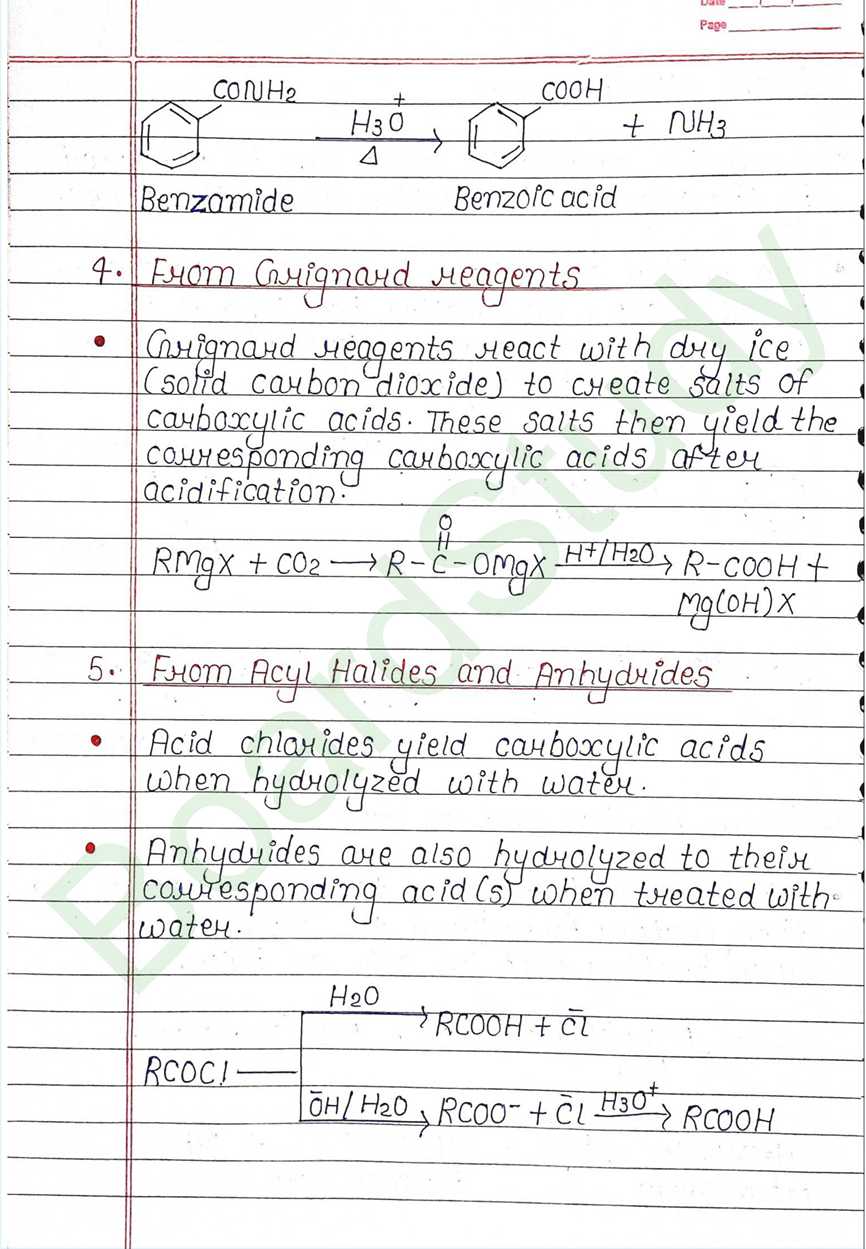 Date
Page
CONH2 COOH
H3O+ + NH3
Δ
Benzamide Benzoic acid
4. From Grignard reagents
• Grignard reagents react with dry ice
(solid carbon dioxide) to create salts of
carboxylic acids. These salts then yield the
corresponding carboxylic acids after
acidification.
O
RMgX + CO2 → R-C-OMgX H+/H2O → R-COOH +
Mg(OH)X
5. From Acyl Halides and Anhydrides
• Acid chlorides yield carboxylic acids
when hydrolyzed with water.
• Anhydrides are also hydrolyzed to their
corresponding acid(s) when treated with
water.
H2O
RCOOH + C̄l
RCOCl
ŌH/H2O → RCOO- + C̄l H3O+ → RCOOH
BoardStudy